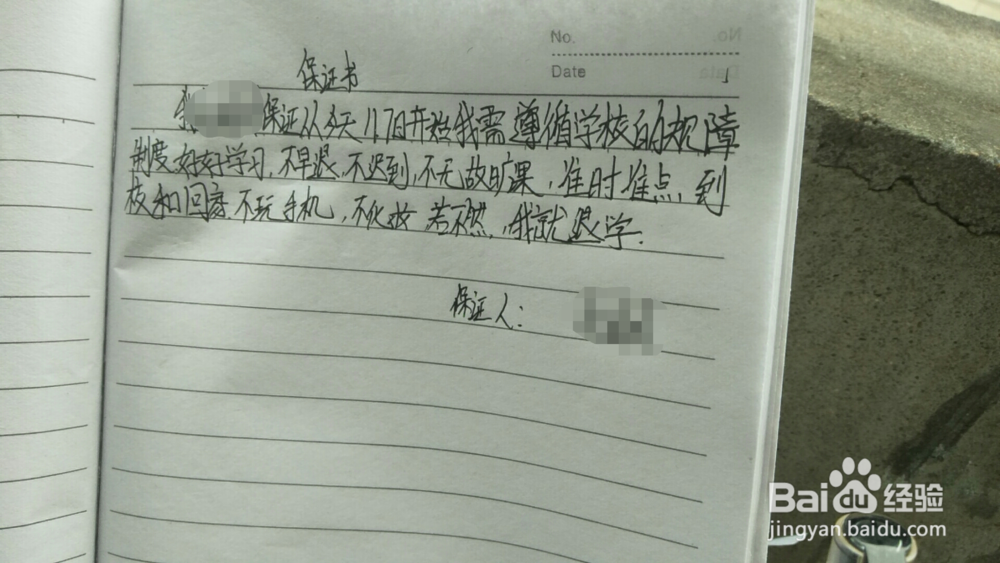 No.
Date
保证书
我 保证从今天17日开始我需遵循学校的规障
制度好好学习,不早退,不迟到,不无故旷课,准时准点到
校和回家不玩手机,不化妆 若不然,我就退学.
保证人:
Baidu经验
jingyan.baidu.com